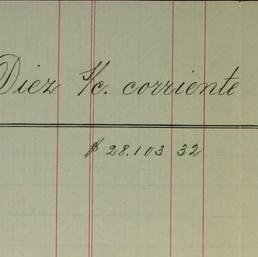 Diez S/c. corriente
$ 28.103 32